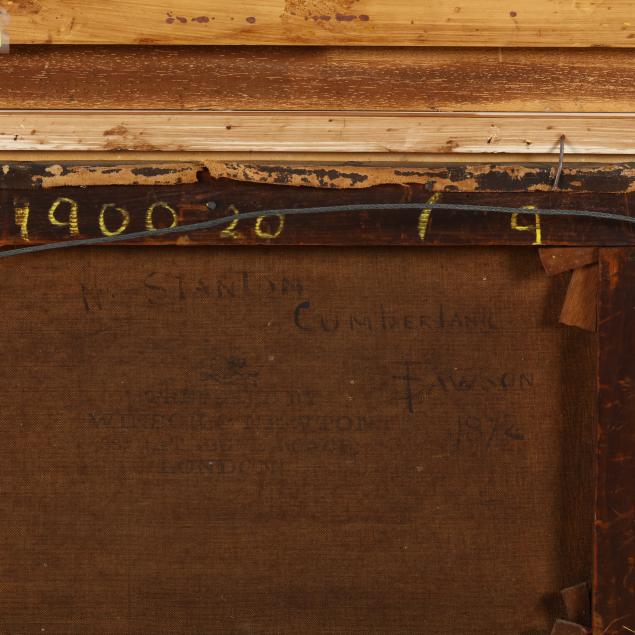 1900 20 1 9
N. STANTON
CUMBERLAND
F. DAWSON
1872
PREPARED BY
WINSOR & NEWTON
LONDON